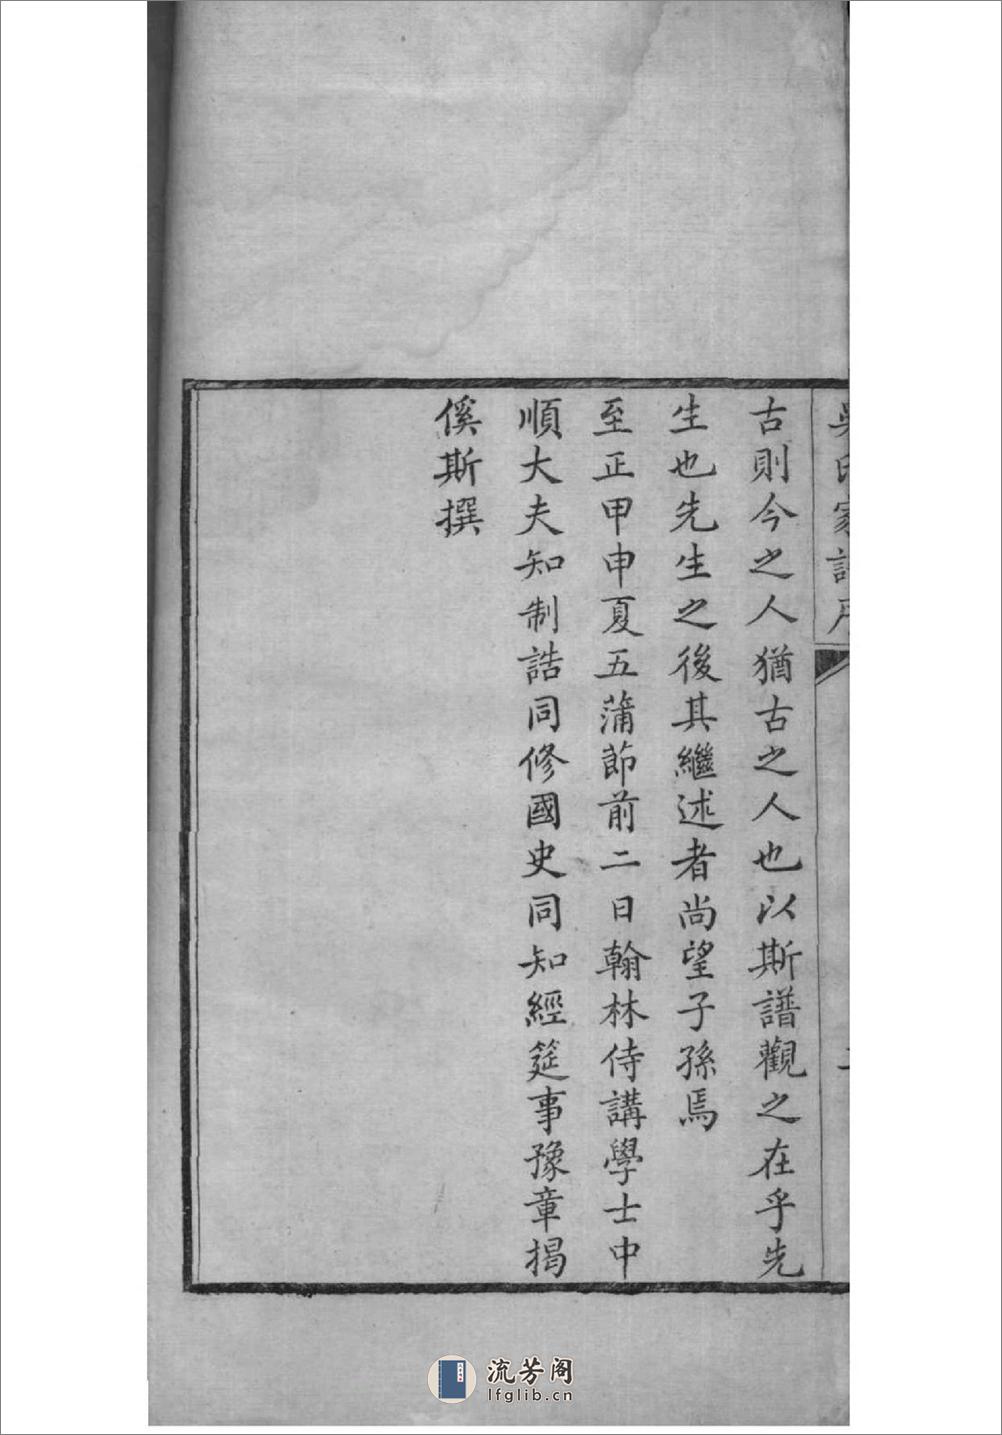 吳氏家譜序
古則今之人猶古之人也以斯譜觀之在乎先
生也先生之後其繼述者尚望子孫焉
至正甲申夏五蒲節前二日翰林侍講學士中
順大夫知制誥同修國史同知經筵事豫章揭
傒斯撰
流芳阁
lfglib.cn